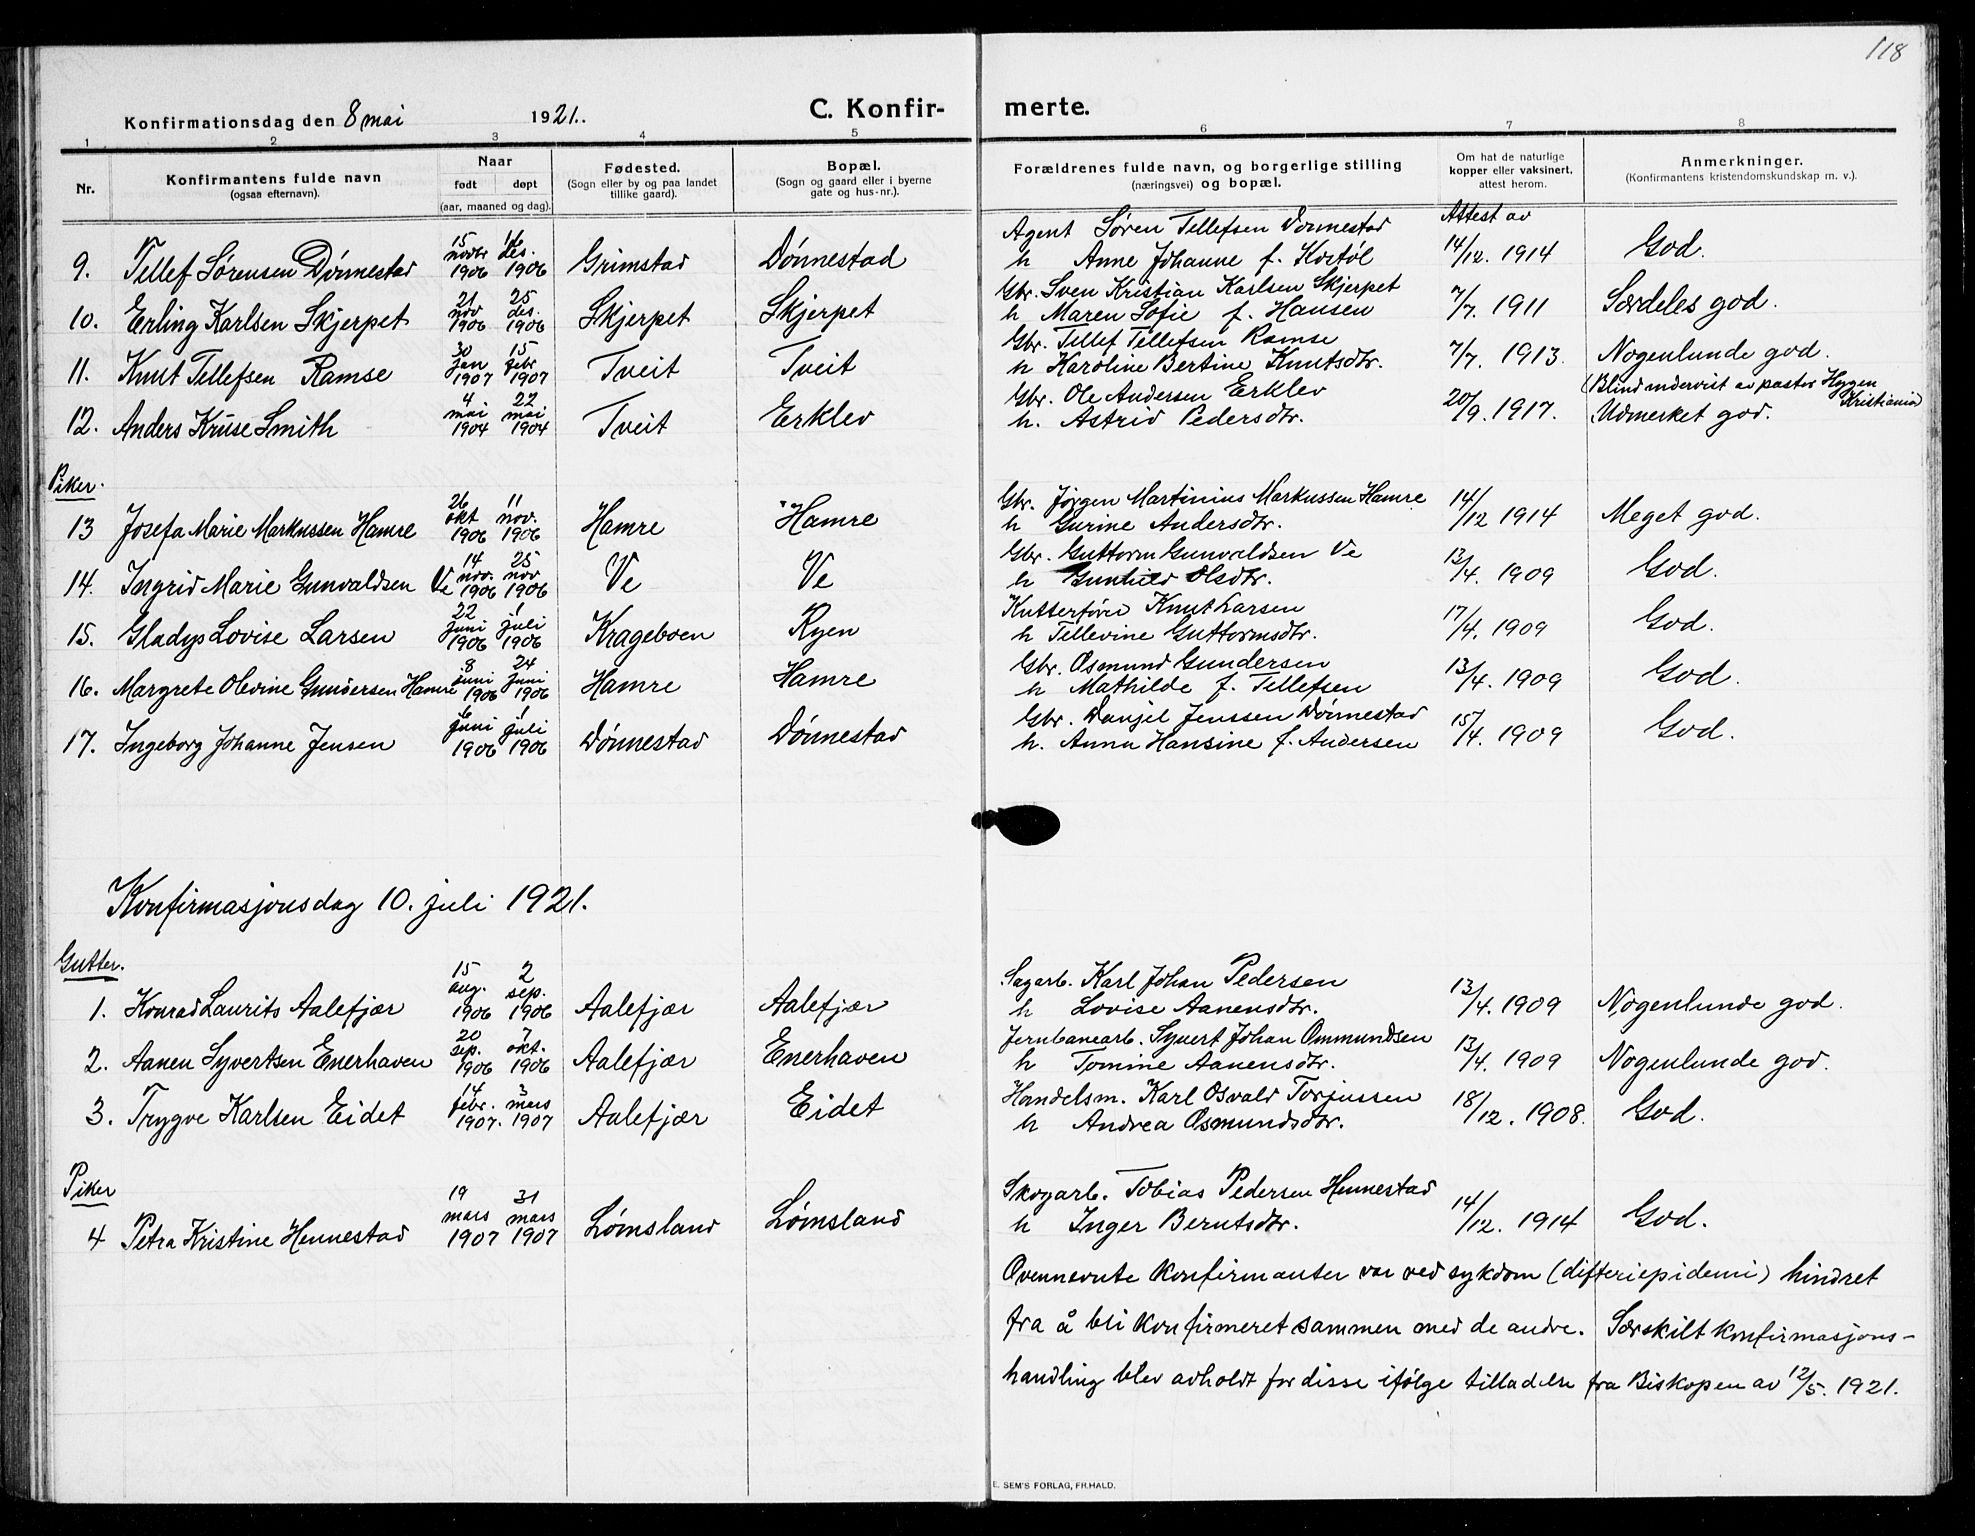 118
Konfirmationsdag den 8 mai 1921.
C. Konfirmerte.
1 2 3 4 5 6 7 8
Nr.
Konfirmantens fulde navn
(ogsaa efternavn).
Naar
født døpt
(aar, maaned og dag).
Fødested.
(Sogn eller by og paa landet
tillike gaard).
Bopæl.
(Sogn og gaard eller i byerne
gate og hus-nr.).
Forældrenes fulde navn, og borgerlige stilling
(næringsvei) og bopæl.
Om hat de naturlige
kopper eller vaksinert,
attest herom.
Anmerkninger.
(Konfirmantens kristendomskundskap m. v.).
Attest av
9. Tellef Sørensen Dønnestad 15 novbr 1906 16 des. 1906 Grimstad Dønnestad Agent Søren Tellefsen Dønnestad 14/12. 1914 God.
h Anne Johanne f. Kostøl
10. Erling Karlsen Skjerpet 21 nov 1906 25 des. 1906 Skjerpet Skjerpet Gbr. Sven Kristian Karlsen Skjerpet 7/7. 1911 Særdeles god.
h Maren Sofie f. Hansen
11. Knut Tellefsen Ramse 30 jan 1907 15 febr 1907 Tveit Tveit Gbr. Tellef Tellefsen Ramse 7/7. 1913. Nogenlunde god.
h Karoline Bertine Knutsdtr.
12. Anders Kruse Smith 4 mai 1904 22 mai 1904 Tveit Erklev Gbr. Ole Andersen Erklev 20/9. 1917. (Blind undervist av pastor Hygen Kristiania)
h. Astrid Pedersdtr. Udmerket god.
Piker.
13 Josefa Marie Markussen Hamre 26 okt 1906 11 nov. 1906 Hamre Hamre Gbr. Jørgen Martinius Markussen Hamre 14/12 1914 Meget god.
h Gurine Andersdtr.
14. Ingrid Marie Gunvaldsen Ve 14 nov. 1906 25 nov 1906 Ve Ve Gbr. Guttorm Gunvaldsen Ve 13/4. 1909 God.
h Gunhild Olsdtr.
15. Gladys Lovise Larsen 22 juni 1906 1 juli 1906 Krageboen Ryen Kutterfører Knut Larsen 17/4. 1909 God.
h Tellevine Guttormsdtr.
16. Margrete Olevine Gundersen Hamre 8 juni 1906 24 juni 1906 Hamre Hamre Gbr. Osmund Gundersen 13/4. 1909 God.
h Mathilde f. Tellefsen
17. Ingeborg Johanne Jensen 6 juni 1906 1 juli 1906 Dønnestad Dønnestad Gbr. Danjel Jenssen Dønnestad 15/4. 1909 God.
h. Anna Hansine f. Andersen
Konfirmasjonsdag 10. juli 1921.
Gutter.
1. Konrad Laurits Aalefjær 15 aug. 1906 2 sep. 1906 Aalefjær Aalefjær Sagarb. Karl Johan Pedersen 13/4. 1909 Nogenlunde god.
h Lovise Aanensdtr.
2. Aanen Syvertsen Enerhaven 20 sep. 1906 7 okt. 1906 Aalefjær Enerhaven Jernbanearb. Syvert Johan Ommundsen 13/4. 1909 Nogenlunde god.
h Tomine Aanensdtr.
3. Trygve Karlsen Eidet 14 febr. 1907. 3 mars 1907 Aalefjær Eidet Handelsm. Karl Osvald Torjussen 18/12. 1908. God.
h Andrea Osmundsdtr.
Piker
4 Petra Kristine Hennestad 19 mars 1907 31 mars 1907 Lømsland Lømsland Skogarb. Tobias Pedersen Hennestad 14/12. 1914 God.
h Inger Berntsdtr.
Ovennevnte konfirmanter var ved sykdom (difteriepidemi) hindret
fra å bli konfirmeret sammen med de andre. Særskilt konfirmasjons-
handling blev avholdt for disse ifølge tilladelse fra Biskopen av 12/5. 1921.
E. SEM'S FORLAG, FR.HALD.